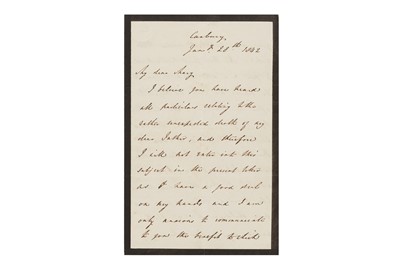 Jany. 20th 1842
My dear Mary,
I believe you have heard
all particulars relating to the
rather unexpected death of my
dear Father, and therefore
I will not enter out this
subject in the present letter
as I have a good deal
on my hands and I am
only anxious to communicate
to you the benefit to which